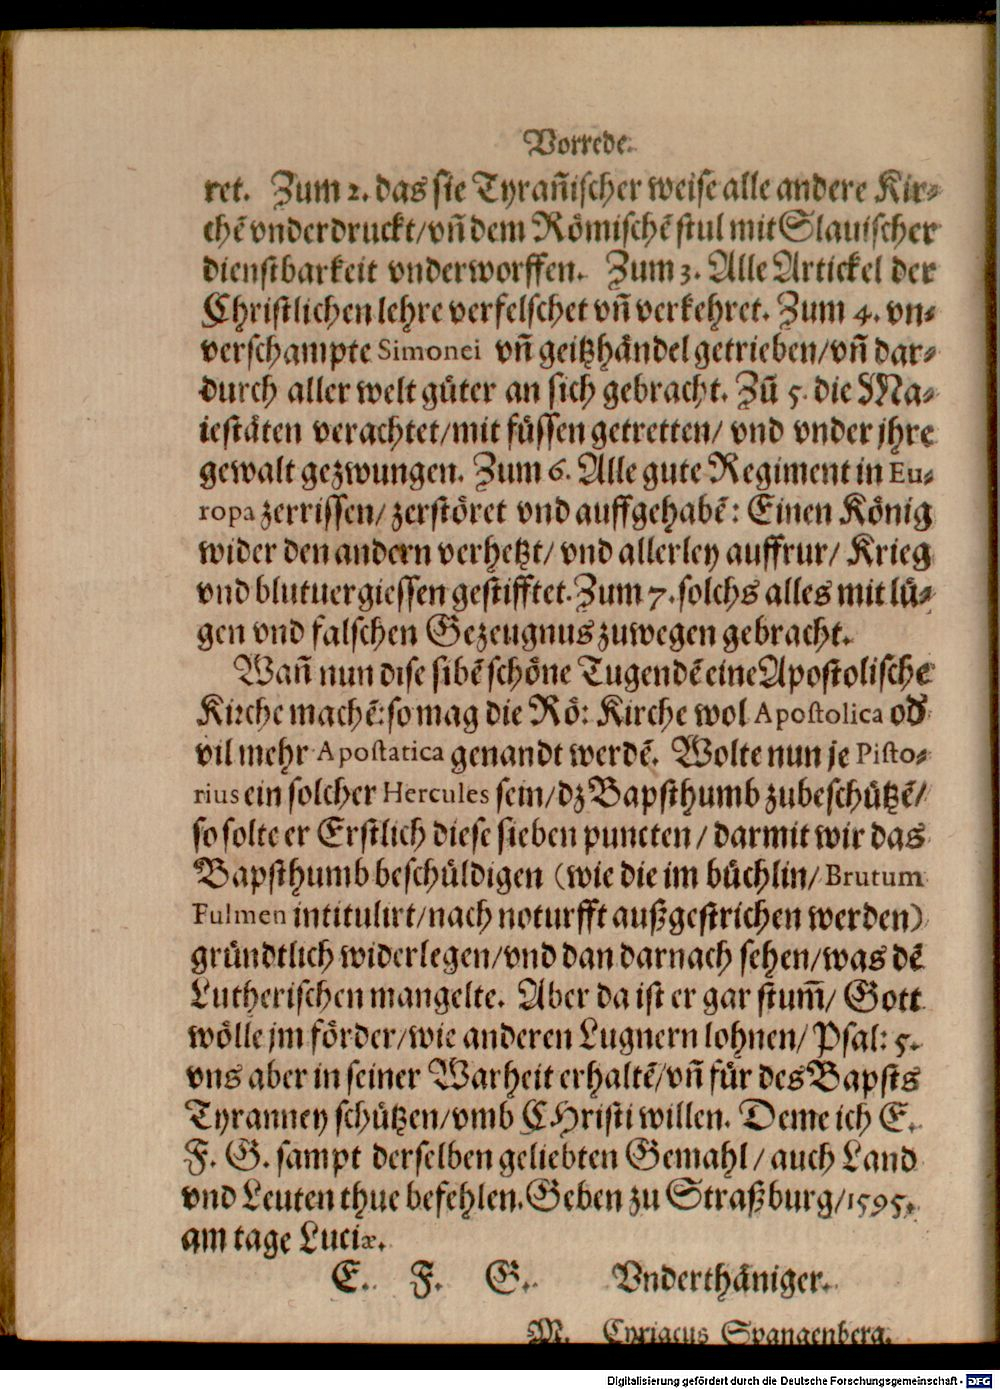 Vorrede.
ret. Zum 2. das sie Tyrañischer weise alle andere Kir⸗
chẽ vnderdruckt/vñ dem Römischẽ stul mit Slauischer
dienstbarkeit vnderworffen. Zum 3. Alle Artickel der
Christlichen lehre verfelschet vñ verkehret. Zum 4. vn⸗
verschampte Simonei vñ geitzhändel getrieben/vñ dar⸗
durch aller welt güter an sich gebracht. Zũ 5. die Ma⸗
iestäten verachtet/mit füssen getretten/ vnd vnder jhre
gewalt gezwungen. Zum 6. Alle gute Regiment in Eu⸗
ropa zerrissen/ zerstöret vnd auffgehabẽ: Einen König
wider den andern verhetzt/ vnd allerley auffrur/ Krieg
vnd blutuergiessen gestifftet. Zum 7. solchs alles mit lü⸗
gen vnd falschen Gezeugnus zuwegen gebracht.
Wañ nun dise sibẽ schöne Tugendẽ eine Apostolische
Kirche machẽ: so mag die Rö: Kirche wol Apostolica od
vil mehr Apostatica genandt werdẽ. Wolte nun je Pisto⸗
rius ein solcher Hercules sein/dz Bapsthumb zubeschützẽ/
so solte er Erstlich diese sieben puncten/ darmit wir das
Bapsthumb beschüldigen (wie die im büchlin/ Brutum
Fulmen intitulirt/nach noturfft außgestrichen werden)
gründtlich widerlegen/vnd dan darnach sehen/was dẽ
Lutherischen mangelte. Aber da ist er gar stum̃/ Gott
wölle jm förder/wie anderen Lugnern lohnen/ Psal: 5.
vns aber in seiner Warheit erhaltẽ/vñ für des Bapsts
Tyranney schützen/vmb CHristi willen. Deme ich E.
F. G. sampt derselben geliebten Gemahl/ auch Land
vnd Leuten thue befehlen. Geben zu Straßburg/1595.
am tage Luciæ.
E. F. G. Vnderthäniger.
M. Cyriacus Spangenberg.
Digitalisierung gefördert durch die Deutsche Forschungsgemeinschaft - DFG